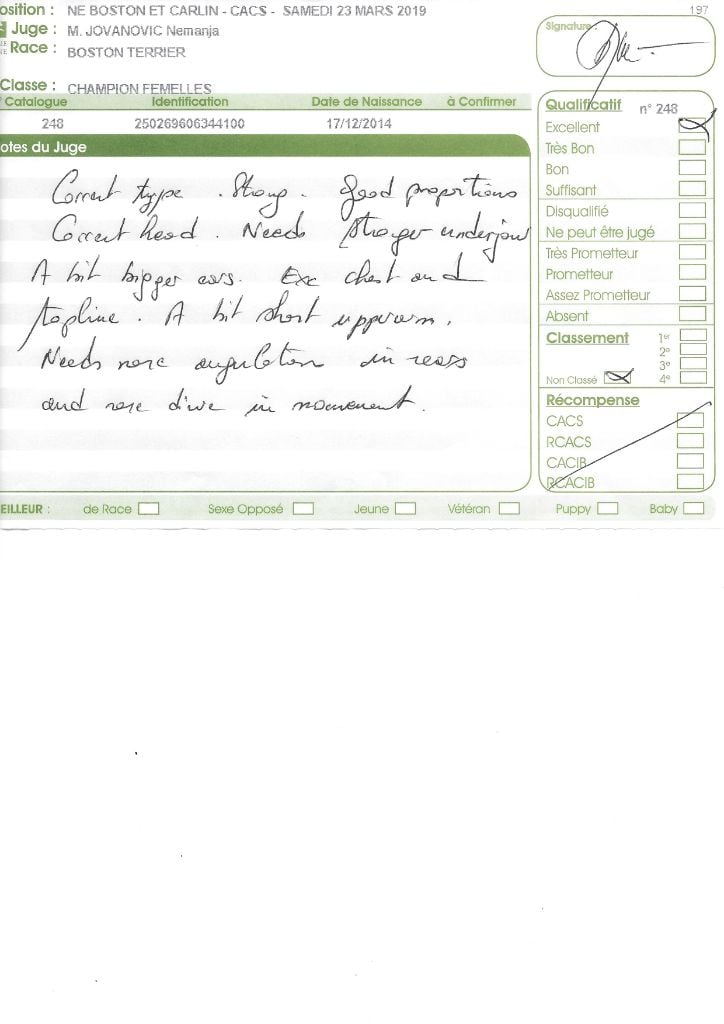 osition : NE BOSTON ET CARLIN - CACS - SAMEDI 23 MARS 2019
197
Juge : M. JOVANOVIC Nemanja
Signature
Race : BOSTON TERRIER
Classe : CHAMPION FEMELLES
Catalogue Identification Date de Naissance à Confirmer
248 250269606344100 17/12/2014
otes du Juge
Correct type . Strong . Good proportions
Correct head . Needs stronger underjaw
A bit bigger ears. Exc chest and
topline . A bit short upperarm .
Needs more angulation in rears
and more drive in movement .
Qualificatif n° 248
Excellent
Très Bon
Bon
Suffisant
Disqualifié
Ne peut être jugé
Très Prometteur
Prometteur
Assez Prometteur
Absent
Classement 1er
2e
3e
Non Classé 4e
Récompense
CACS
RCACS
CACIB
RCACIB
EILLEUR : de Race Sexe Opposé Jeune Vétéran Puppy Baby